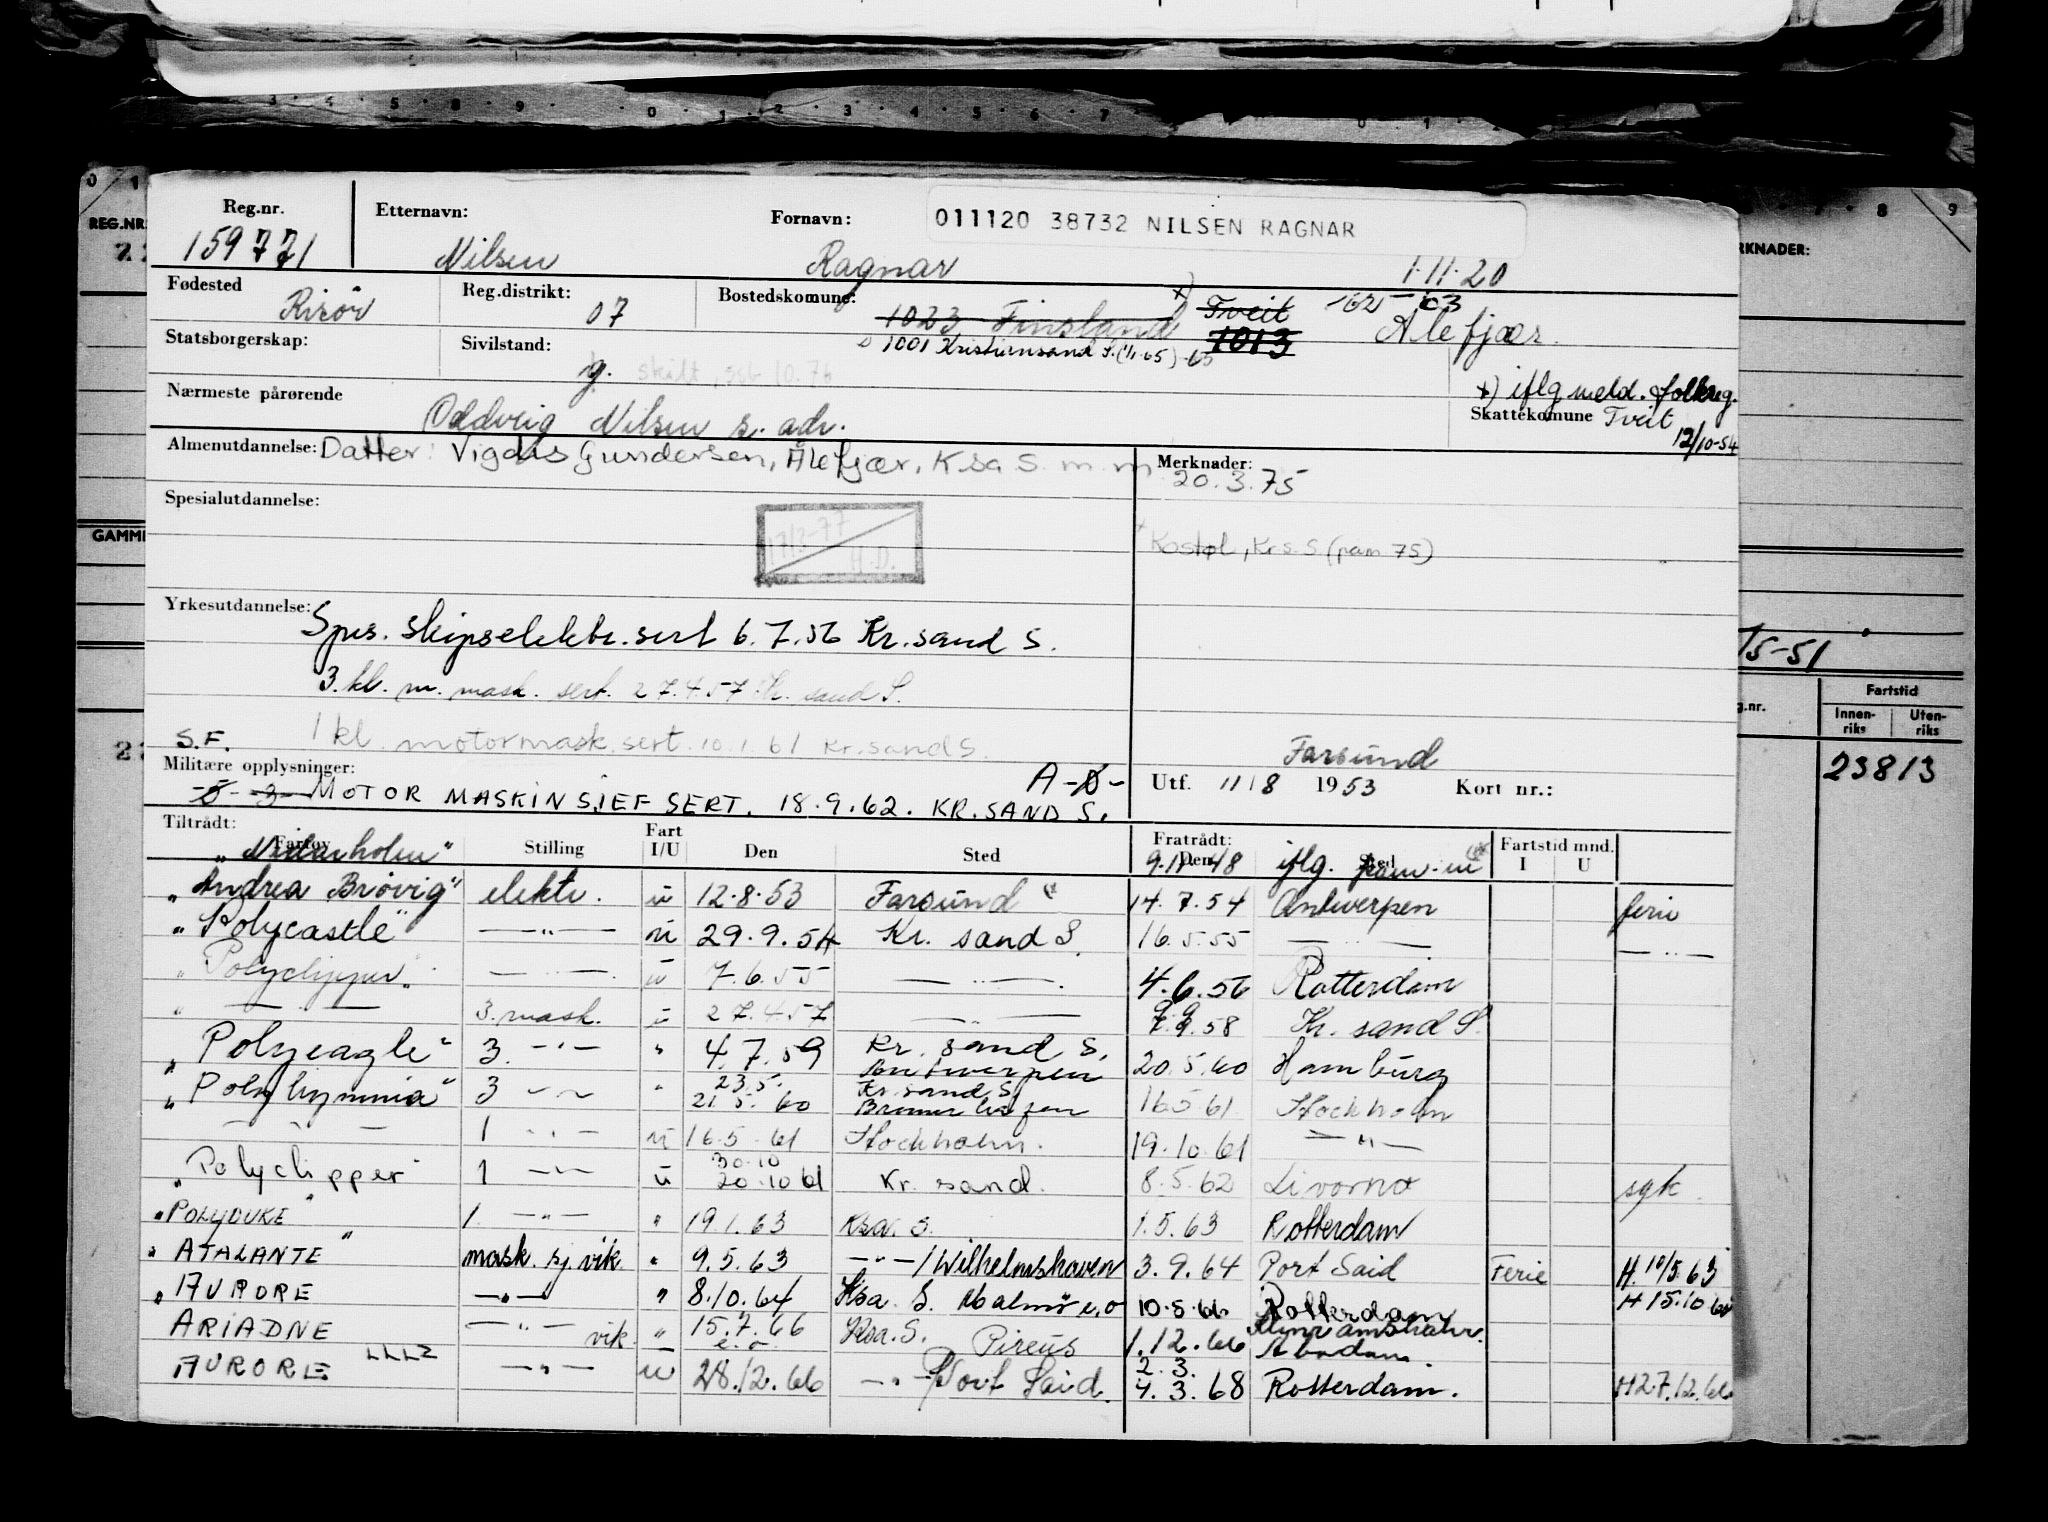 Reg.nr. Etternavn: Fornavn: 011120 38732 NILSEN RAGNAR
159771 Nilsen Ragnar 1.11.20
Fødested Risör Reg.distrikt: 07 Bostedskomune: 1023 Finsland x) Tveit 1013 Ålefjær
Statsborgerskap: Sivilstand: g. skilt 1001 Kristiansand S. (1/1-65)
x) iflg meld. folkreg.
Nærmeste pårørende Oddveig Nilsen s. adr. Skattekomune Tveit
12/10-54
Almenutdannelse: Datter: Vigdis Gundersen, Ålefjær, Ksa S. m.m Merknader:
20.3.75
Spesialutdannelse:
17/2-77 H.D.
Krs. S (pam 75)
Yrkesutdannelse: Spes. skipselektr. sert 6.7.56 Kr.sand S.
3. kl. m. mask. sert. 27.4.57 Kr. sand S.
S.F. 1 kl. motormask. sert. 10.1.61 Kr.sand S.
Farsund
Militære opplysninger: A-6- Utf. 11/8 1953 Kort nr.:
MOTOR MASKINSJEF SERT. 18.9.62. KR.SAND S.
Tiltrådt: Fratrådt:
Fartøy Stilling Fart I/U Den Sted Den Sted Fartstid mnd. I U
"Nidarholm" 9.11.48 iflg.
"Andrea Brøvig" elektr. u 12.8.53 Farsund 14.7.54 Antwerpen ferie
"Polycastle" —"— u 29.9.54 Kr. sand S. 16.5.55 —"— —"—
"Polyclipper" —"— u 7.6.55 —"— 4.6.56 Rotterdam
" — — 3. mask. u 27.4.57 —"— 7.9.58 Kr. sand S.
"Polyeagle" 3. —"— " 4.7.59 Kr. sand S. Antwerpen 20.5.60 Hamburg
"Polyhymnia" 3 —"— " 23.5. 21.5.60 Kr.sand S. Bremerhafen 16.5.61 Stockholm
— " — 1 —"— u 16.5.61 Stockholm. 19.10.61 —"—
"Polyclipper" 1 —"— u 30.10 20.10.61 Kr. sand. 8.5.62 Livorno syk.
"POLYDUKE" 1. —"— " 19.1.63 Ksa. S. 1.5.63 Rotterdam
"ATALANTE" mask. sj. vik. " 9.5.63 —"—/Wilhelmshaven 3.9.64 Port Said Ferie H. 10/5.63
"AURORE —"— " 8.10.64 Ksa. S. Malmö e.o 10.5.66 Rotterdam H 15.10.64
ARIADNE —"— vik. " 15.7.66 e.o. Ksa. S. Pireus 1.12.66 Abadan.
AURORE LLLZ —"— u 28.12.66 —"— Port Said. 2.3. 4.3.68 Rotterdam. H 27.12.66
REG.NR.
GAMM
RKNADER:
15-51
g.nr. Fartstid
Innen-riks Uten-riks
23813